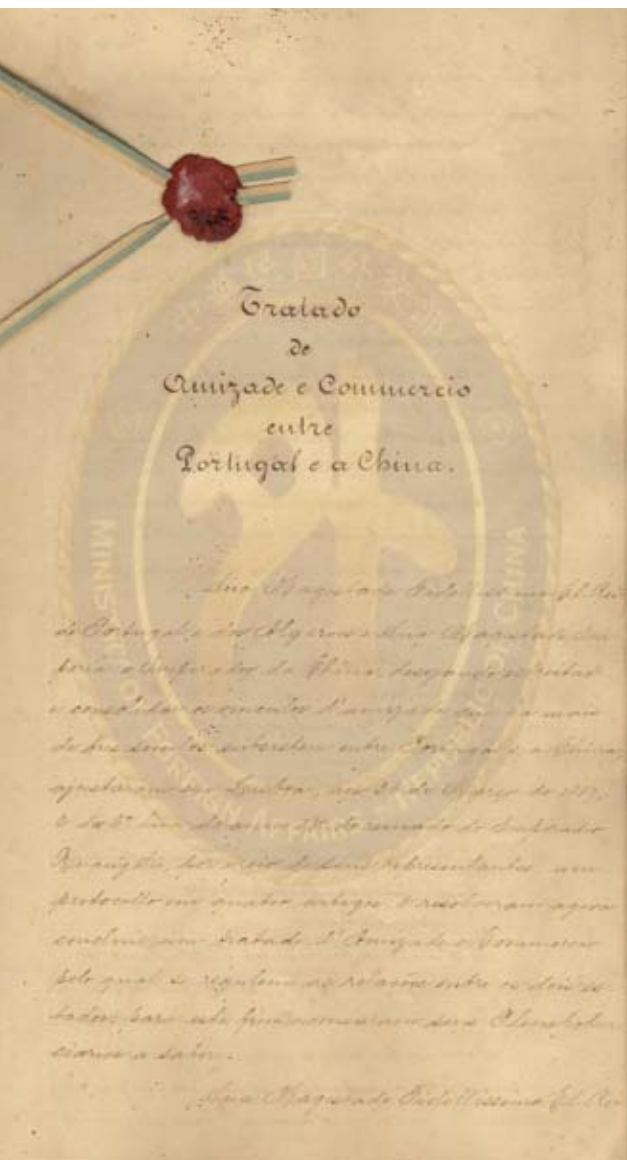 Tratado
de
Amizade e Commercio
entre
Portugal e a China.
Sua Magestade Fidelissima El-Rei
de Portugal e dos Algarves e Sua Magestade Im
perial o Imperador da China, desejando estreitar
e consolidar os d'amizade que ha mais
de tres seculos subsistem entre Portugal e a China,
ajustaram em Lisboa, aos 26 de Março de 1887,
2 da 3ª lua do anno do reinado do Imperador
por meio de seus representantes um
protocollo em quatro artigos e resolveram agora
concluir um Tratado d'Amizade e Commercio
pelo qual se regulem as relações entre os dois es
tados; para este fim nomearam seus Plenipoten
ciarios a saber:
Sua Magestade Fidelissima El-Rei
MINISTRY OF FOREIGN AFFAIRS REPUBLIC OF CHINA